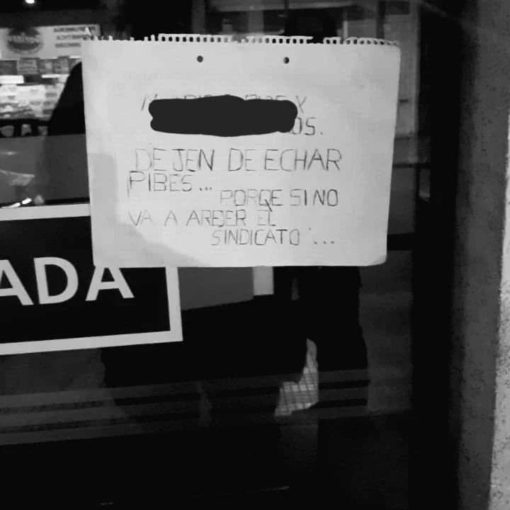 DEJEN DE ECHAR
PIBES...
PORQE SI NO
VA A ARBER EL
SINDICATO...
ADA